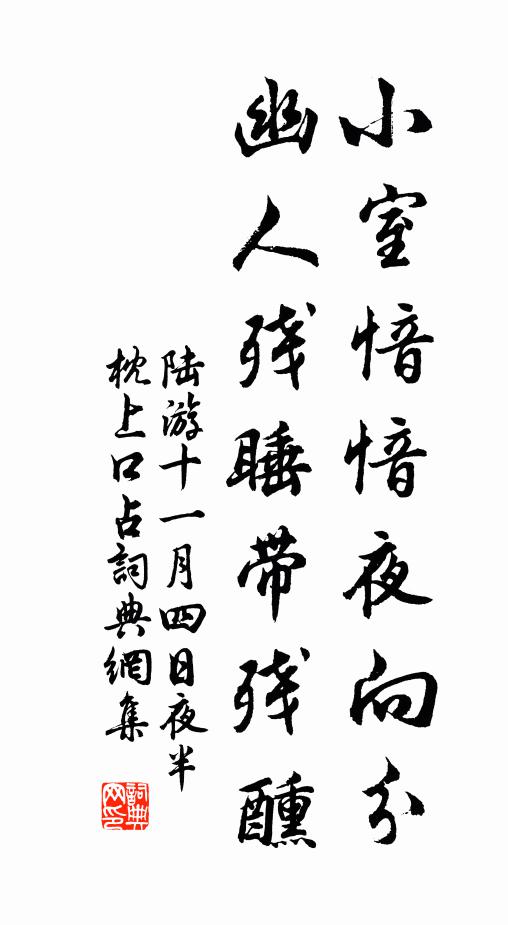 小室愔愔夜向分
幽人残睡带残醺
陆游十一月四日夜半
枕上口占詞典網集
詞典网印